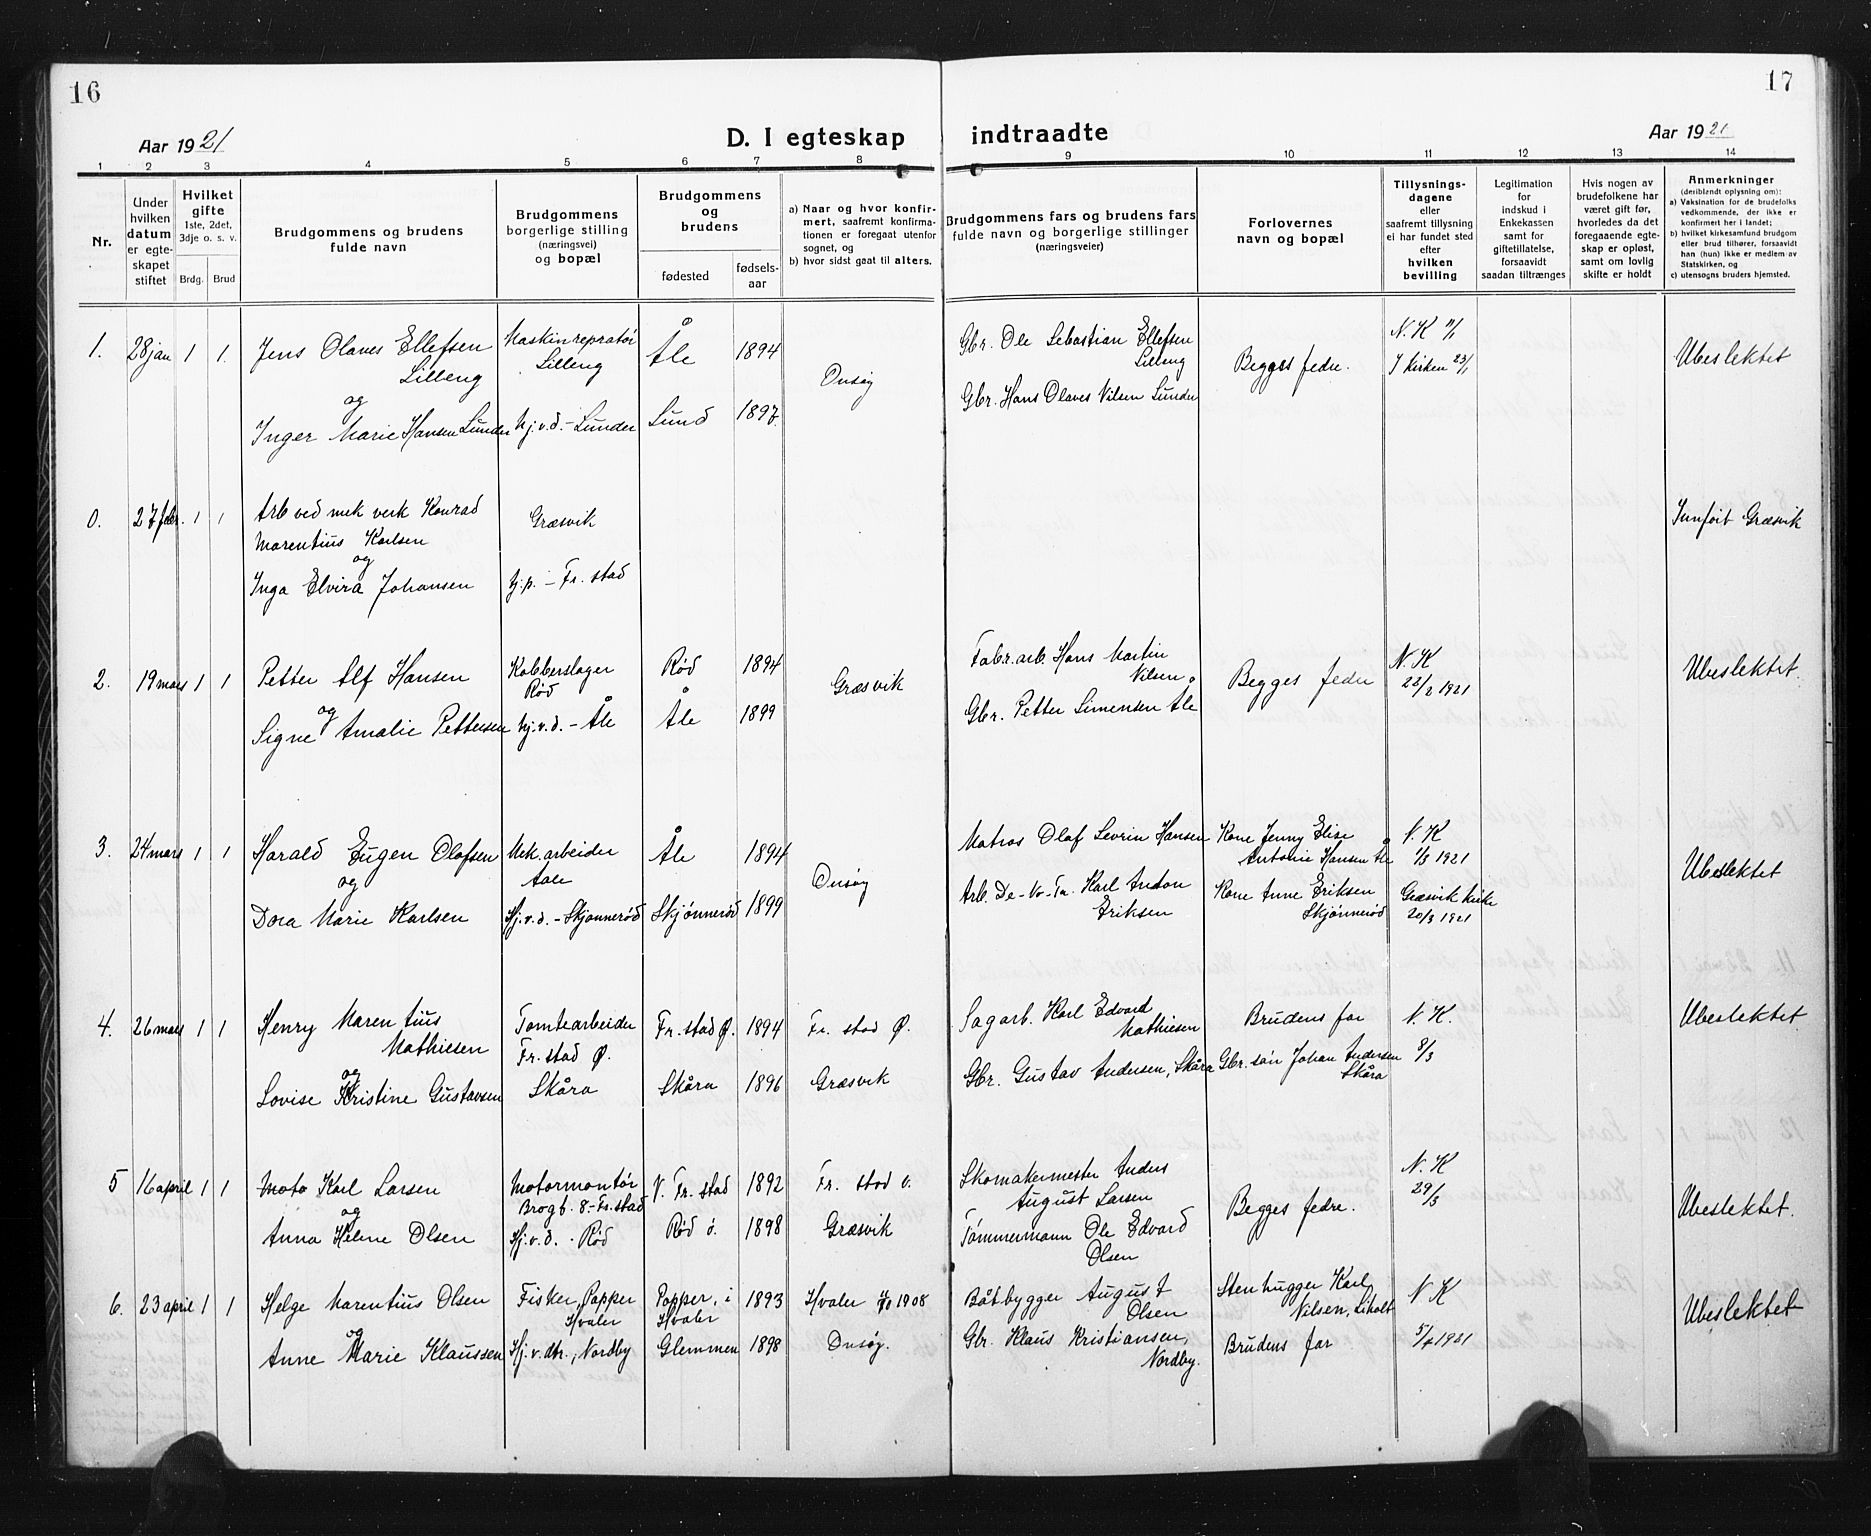 16
17
Aar 1921
D. I egteskap
indtraadte
Aar 1921
1 2 3 4 5 6 7 8 9 10 11 12 13 14
Nr.
Under hvilken datum er egteskapet stiftet
Hvilket gifte
1ste, 2det, 3dje o. s. v.
Brdg. Brud
Brudgommens og brudens
fulde navn
Brudgommens
borgerlige stilling
(næringsvei)
og bopæl
Brudgommens
og
brudens
fødested
fødsels-
aar
a) Naar og hvor konfir-
mert, saafremt konfirma-
tionen er foregaat utenfor
sognet, og
b) hvor sidst gaat til alters.
Brudgommens fars og brudens fars
fulde navn og borgerlige stillinger
(næringsveier)
Forlovernes
navn og bopæl
Tillysnings-
dagene
eller
saafremt tillysning
ei har fundet sted
efter
hvilken
bevilling
Legitimation
for
indskud i
Enkekassen
samt for
giftetillatelse,
forsaavidt
saadan tiltrænges
Hvis nogen av
brudefolkene har
været gift før,
hvorledes da det
foregaaende egte-
skap er opløst,
samt om lovlig
skifte er holdt
Anmerkninger
(deriblendt oplysning om):
a) Vaksination for de brudefolks
vedkommende, der ikke er
konfirmert her i landet;
b) hvilket kirkesamfund brudgom
eller brud tilhører, forsaavidt
han (hun) ikke er medlem av
Statskirken, og
c) utensogns bruders hjemsted.
1. 28 jan 1 1. Jens Olaves Ellefsen Maskinrepratør Åle 1894 Gbr. Ole Sebastian Ellefsen N. K 11/1
Lilleng Lilleng Onsøy Lilleng Begges fedre. I kirken 23/1 Ubeslektet
og
Inger Marie Hansen Lunder hj.v.d. - Lunder Lund 1897. Gbr. Hans Olaves Nilsen Lunder
0. 27 febr. 1 1 Arb ved mek verk Konrad Græsvik Innført Græsvik
Marentius Karlsen
og
Inga Elvira Johansen hj.p. - Fr. stad
2. 19 mars 1 1 Petter Alf Hansen Kobberslager Rød 1894 Græsvik Fabr. arb. Hans Martin N. K Ubeslektet.
Rød Nilsen Begges fedre 22/2 1921
og
Signe Amalie Pettersen hj.v.d. - Åle Åle 1899 Gbr. Petter Simensen Åle
3. 24 mars 1 1 Harald Eugen Olafsen Mek. arbeider Åle 1894 Matros Olaf Sevrin Hansen Kone Jenny Elise N. K
Aale Onsøy Antonie Hansen Åle 1/3 1921 Ubeslektet
og
Dora Marie Karlsen Hj.v.d. - Skjønnerød Skjønnerød 1899 Arb. Karl Anton Kone Anne Eriksen Græsvik kirke
Eriksen Skjønnerød 20/3 1921
4. 26 mars 1 1 Henry Marentius Tomtearbeider Fr. stad Ø. 1894 Fr. stad Ø. Sagarb. Karl Edvard Brudens far N. K. Ubeslektet
Mathiesen Fr. stad Ø. Mathiesen 8/3
og
Lovise Kristine Gustavsen Skåra Skåra 1896 Græsvik Gbr. Gustav Andersen, Skåra Gbr. søn Johan Andersen
Skåra
5 16 april 1 1 Moto Karl Larsen Motormontør V. Fr. stad 1892 Fr. stad v. Skomakermester Anders N. K
Brogt. 8 - Fr. stad August Larsen 29/3 Ubeslektet.
og
Anna Helene Olsen Hj.v.d. - Rød Rød ö. 1898 Græsvik Tømmermann Ole Edvard Begges fedre.
Olsen
6. 23 april 1 1 Helge Marentius Olsen Fisker, Papper Papper, i 1893 Hvaler 1908 Båtbygger August Stenhugger Karl N K Ubeslektet
Hvaler Hvaler Olsen Nilsen, Liholt
og
Anne Marie Klaussen Hj.v.dtr., Nordby Glemmen 1898 Onsøy. Gbr. Klaus Kristiansen, Brudens far 5/4 1921
Nordby.